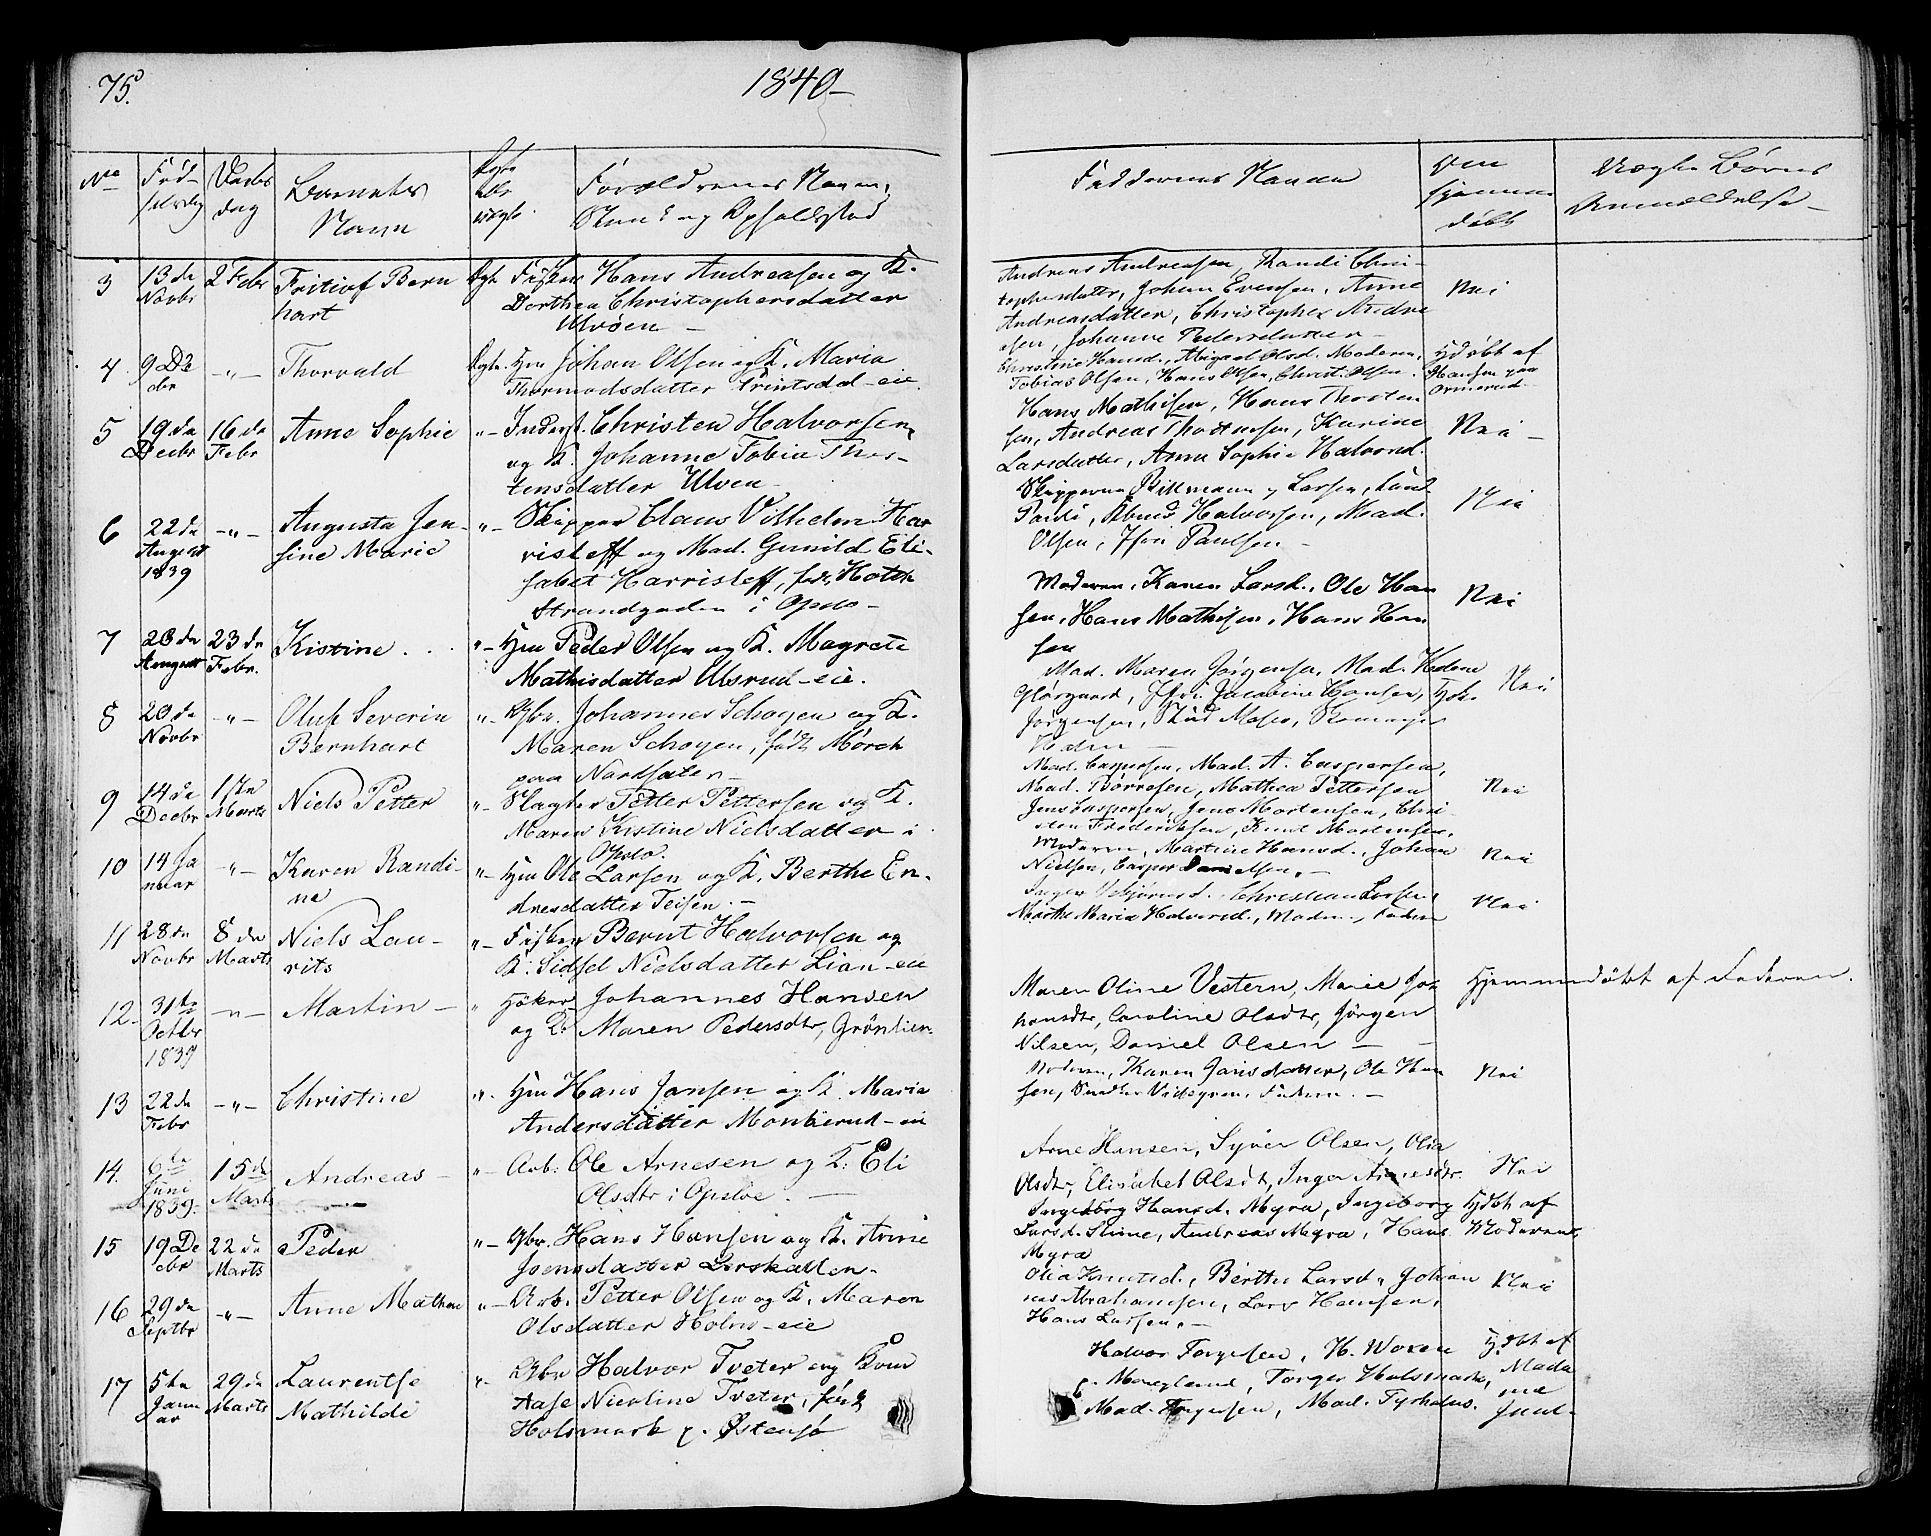 75.
1840
No
Fød-
selsdag
Daabs
dag
Barnets
Navn
Ægte
eller
uægte.
Forældrenes Navne,
Stand og Opholdsted
Faddernes Navne
Om
hjemme
døbt
Uægte Børns
Anmeldelse
3
13de
Novbr
2 Febr
Fritiof Bern
hart
Ægte
Fisker Hans Andreasen og K.
Dorthea Christophersdatter
Ulvøen
Andreas Andreasen, Randi Chri-
stophersdatter, Johan Evensen, Anne
Andreasdatter, Christopher Andre
sen, Johanne Pedersdatter
Nei
4
9 De
cbr
-"-
Thorvald
Ægte.
Hm Johan Olsen og K. Maria
Thormodsdatter eie.
Christine Hansd., Abigael Olsd. Moderen,
Tobias Olsen, Hans Olsen, Christ. Olsen.
Hjdøbt af
Hansen paa
Ormerud
5
19de
Decbr
16de
Febr
Anne Sophie
"-
Inderst. Christen Halvorsen
og K. Johanne Tobia Thor-
tensdatter Ulven
Hans Mathisen, Hans Thorsten
sen, Andreas Thostensen, Karine
Larsdatter, Anne Sophie Halvorsd.
Nei
6
22de
August
1839
-"-
Augusta Jen-
sine Marie
"-
Skipper Claus Vilhelm Har
risleff og Mad. Gunild Eli-
sabet Harrisleff, født Holch
Strandgaden i Opslo
Skipperne Billmann og Larsen,
Halvorsen, Mad.
Olsen, Jfru Paulsen
Nei
7
20de
August
23de
Febr.
Kistine
"-
Hm Peder Olsen og K. Magrete
Mathisdatter Ulsrud-eie.
Moderen, Karen Larsd., Ole Han
sen, Hans Mathisen, Hans Han
sen
Nei
8
20de
Novbr
-"-
Oluf Severin
Bernhart
"-
Gbr. Johannes Schøyen og K.
Maren Schøyen, født Mørch
paa Nordsæter
Mad. Maren Jørgensen, Mad. Hedene
Jfr. Jacobine Hansen, Hjk.
Jørgensen, Stud Moser,
Nei
9
14de
Decbr
1ste
Marts
Niels Petter
"-
Slagter Petter Pettersen og K.
Maren Kistine Nielsdatter i
Opslo.
Mad. Caspersen, Mad. A. Caspersen,
Mad. Børresen, Mathea Pettersen
Jens Caspersen, Jens Mortensen, Chri-
sten Frederiksen, Knut Mortensen.
Nei
10
14 Ja
nuar
-"-
Karen Randi-
ne
"-
Hm Ole Larsen og K. Berthe En-
dresdatter Teisen.
Moderen, Martine Hansd., Johan
Nielsen, Casper Danielsen.
Nei
11
28de
Novbr
8de
Marts
Niels Lau-
rits
"-
Fisker Bernt Halvorsen og
K. Sidsel Nielsdatter Lian-eie
Christian Larsen,
Marthe Maria Halvorsd., Moderen, Faderen
Nei
12.
31te
Octbr
1839
-"-
Martin
"
Høker Johannes Hansen
og K: Maren Pedersdtr, Grønlien.
Maren Oline Vestern, Marie Jo
hansdtr, Caroline Olsdtr, Jørgen
Nilsen, Daniel Olsen
Hjemmedøbt af Faderen.
13
22de
Febr
-"-
Christine
"-
Hm Hans Jansen og K. Maria
Andersdatter Monkerud-eie
Moderen, Karen Jansdatter, Ole Han
sen, Faderen.
Nei
14.
6te
Juni
1839.
15de
Marts
Andreas
"-
Arb: Ole Arnesen og K: Eli
Olsdtr i Opsloe.
Arne Hansen, Syver Olsen, Olia
Olsdtr, Elisabet Olsdt, Inger Arnesdtr.
Nei
15
19 De
cbr
22de
Marts
Peder
"-
Gbr. Hans Hansen og K. Anne
Joensdatter Lerskallen.
Ingeborg Hansd. Myra, Ingeborg
Larsd. Stune, Andreas Myra, Hans
Myra
Hjdbt af
Moderen
16
29de
Septbr
-"-
Anne Mathea
"-
Arb. Petter Olsen og K. Maren
Olsdatter Holm-eie
Olia Knutsd., Berthe Larsd., Johan
nes Abrahamsen, Lars Hansen,
Hans Larsen.
Nei
17
5te
Janu
ar
29de
Marts
Laurentse
Mathilde
"-
Gbr Halvor Tveter og Kone
Aase Nicoline Tveter, født
Holsmark p. Østensjø
Halvor Torgersen, H. Woxen
p. Manglerud, Torger Holsmark,
Mad. Torgersen, Mad. Tyrholm.
Hjdbt af
Mada
me
Juul